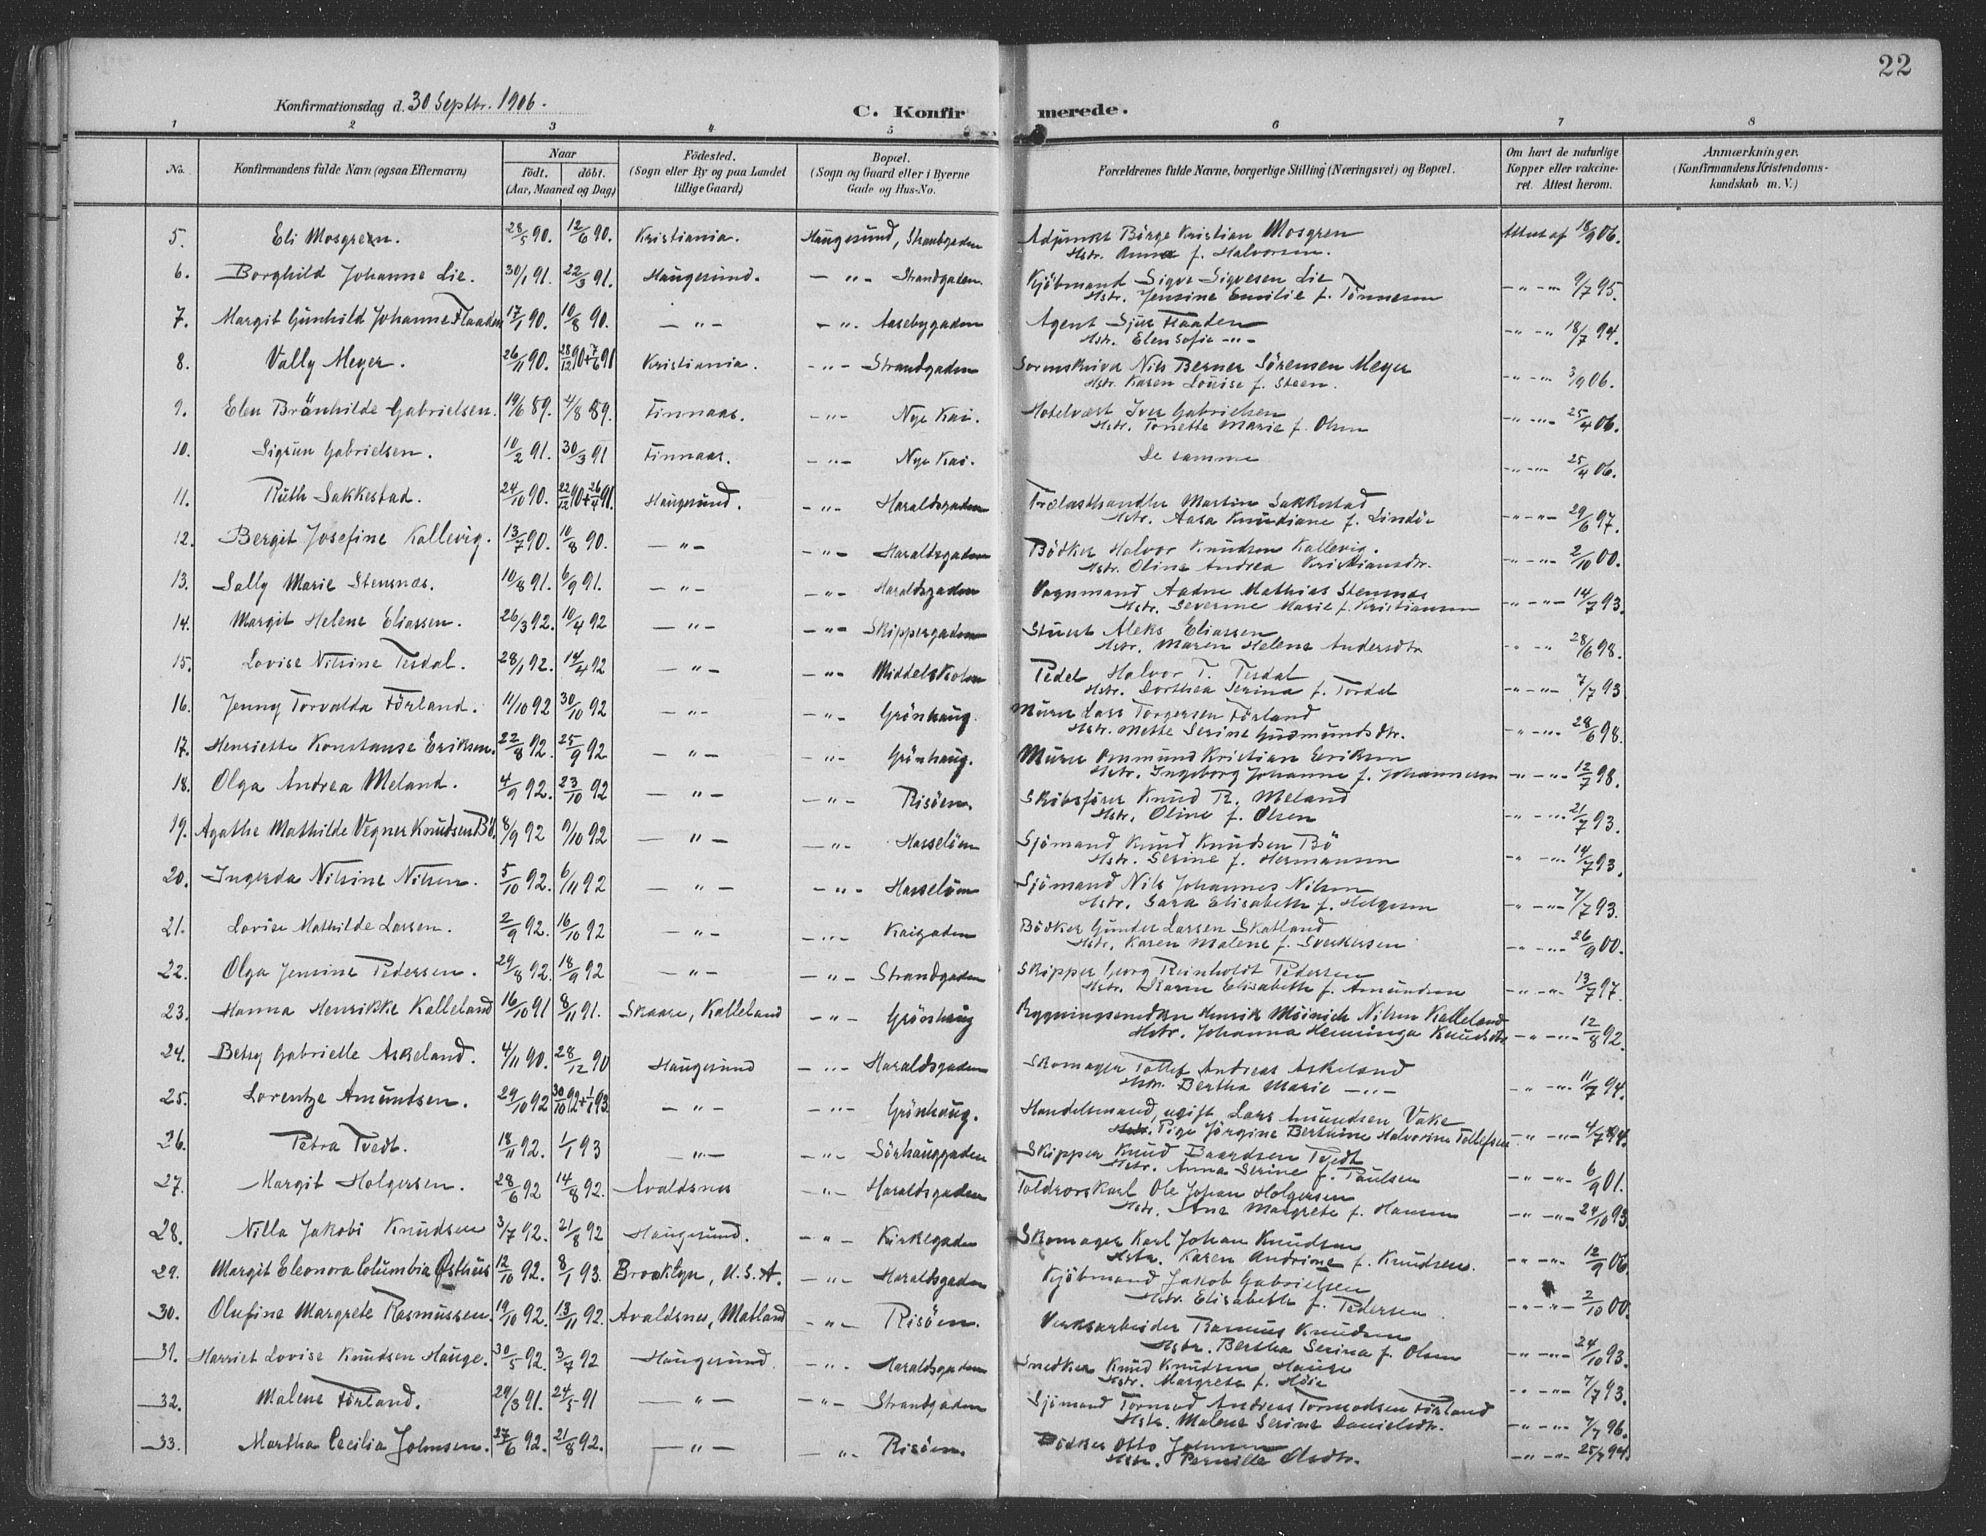 22
Konfirmationsdag d. 30 Septbr. 1906.
C. Konfirmerede.
1 2 3 4 5 6 7 8
No. Konfirmandens fulde Navn (ogsaa Efternavn) Naar født. døbt. (Aar, Maaned og Dag) Fødested. (Sogn eller By og paa Landet tillige Gaard) Bopæl. (Sogn og Gaard eller i Byerne Gade og Hus-No. Forældrenes fulde Navne, borgerlige Stilling (Næringsvei) og Bopæl. Om havt de naturlige Kopper eller vaccineret. Attest herom. Anmærkninger. (Konfirmandens Kristendomskundskab m. V.)
5. Eli Mosgren. 28/5 90. 12/6 90. Kristiania. Haugesund, Strandgaden Adjunkt Børge Kristian Mosgren Attest af 18/9 06.
Hstr. Anna f. Halvorsen.
6. Borghild Johanne Lie. 30/1 91. 22/3 91. Haugesund. — „ — Strandgaden. Kjøbmand Sigve Sigvesen Lie — „ — „ — 9/7 95.
Hstr. Jensine Emilie f. Tønnesen
7. Margit Gunhild Johanne Flaaden 17/1 90. 10/8 90. — „ — — „ — Aasebygaden Agent Sjur Flaaden — „ — „ — 18/7 94.
Hstr. Elen Sofie — „ —
8. Vally Meyer. 26/11 90. 28/12 90 + 7/6 91 Kristiania. — „ — Strandgaden Sorenskriver Nils Berner Sørensen Meyer — „ — „ — 3/9 06.
Hstr. Karen Louise f. Steen.
9. Elen Brånhilde Gabrielsen. 19/6 89. 4/8 89. Finnaas. — „ — Nye Kai. Hotelvært Iver Gabrielsen — „ — „ — 25/4 06.
Hstr. Tonette Marie f. Olsen
10. Sigrun Gabrielsen. 10/2 91. 30/3 91 Finnaas. — „ — Nye Kai. De samme — „ — „ — 25/4 06.
11. Ruth Sakkestad. 24/10 90. 22/12 90 + 26/4 91. Haugesund. — „ — Haraldsgaden Trælasthandler Martin Sakkestad — „ — „ — 29/6 97.
Hstr. Aasa Knudiane f. Lindøe
12. Bergit Josefine Kallevig. 13/7 90. 10/8 90. — „ — — „ — Haraldsgaden Bødker Halvor Knudsen Kallevig. — „ — „ — 2/10 00.
Hstr. Oline Andrea Kristiansdtr.
13. Sally Marie Stensnæs. 10/8 91. 6/9 91. — „ — — „ — Haraldsgaden Vognmand Aadne Mathias Stensnæs — „ — „ — 14/7 93.
Hstr. Severine Marie f. Kristiansen
14. Margit Helene Eliassen. 26/3 92. 10/4 92 — „ — — „ — Skippergaden Stuert Aleks Eliassen — „ — „ — 28/6 98.
Hstr. Maren Helene Andersdtr
15. Lovise Nilsine Tesdal. 28/1 92. 14/4 92 — „ — — „ — Middelskolen Pedel Halvor T. Tesdal — „ — „ — 7/7 93
Hstr. Dorthea Serina f. Tordal
16. Jenny Torvalda Førland. 11/10 92 30/10 92 — „ — — „ — Grønhaug. Murer Lars Torgersen Førland — „ — „ — 28/6 98.
Hstr. Mette Serine Gudmundsdtr.
17. Henriette Konstanse Eriksen. 22/8 92. 25/9 92 — „ — — „ — Grønhaug. Murer Ommund Kristian Eriksen — „ — „ — 12/7 98.
Hstr. Ingeborg Johanne f. Johannesen
18. Olga Andrea Meland. 4/9 92. 23/10 92 — „ — — „ — Risøen. Skibsfører Knud R. Meland — „ — „ — 21/7 93.
Hstr. Oline f. Olsen
19. Agathe Mathilde Vegner Knudsen Bø. 8/9 92 9/10 92 — „ — — „ — Hasseløen Sjømand Knud Knudsen Bø — „ — „ — 14/7 93.
Hstr. Serine f. Hermansen
20. Ingerda Nilsine Nilsen. 5/10 92. 6/11 92 — „ — — „ — Hasseløen Sjømand Nils Johannes Nilsen — „ — „ — 7/7 93.
Hstr. Sara Elisabeth f. Helgesen
21. Lovise Mathilde Larsen. 2/9 92. 16/10 92 — „ — — „ — Kaigaden Bødker Gunder Larsen Skatland — „ — „ — 26/9 00.
Hstr. Karen Malene f. Sverkersen
22. Olga Jensine Pedersen. 29/8 92. 18/9 92 — „ — — „ — Strandgaden Skipper Georg Reinholdt Pedersen — „ — „ — 13/7 97.
Hstr. Karen Elisabeth f. Amundsen
23. Hanna Henrikke Kalleland 16/10 91 8/11 91. Skaare, Kalleland — „ — Grønhaug Bygningssnedker Henrik Meinich Nilsen Kalleland — „ — „ — 12/8 92.
Hstr. Johanna Henninga Knudsdtr
24. Betsy Gabrielle Askeland. 4/11 90. 28/12 90 Haugesund — „ — Haraldsgaden Skomager Tollef Andreas Askeland — „ — „ — 11/7 94.
Hstr. Bertha Marie — „ —
25. Lorentze Amundsen. 29/10 92 30/10 92 + 1/6 93. — „ — — „ — Grønhaug. Handelsmand, ugift Lars Amundsen Vake — „ — „ — 4/7 94.
Pige Jørgine Bertine Halvorine Tollefsen
26. Petra Tvedt. 18/11 92. 1/1 93 — „ — — „ — Sørhauggaden Skipper Knud Baardsen Tvedt — „ — „ — 6/9 01.
Hstr. Anna Serine f. Paulsen
27. Margit Holgersen. 28/6 92 14/8 92. Avaldsnes — „ — Haraldsgaden Toldrorskarl Ole Johan Holgersen — „ — „ — 24/10 93
Hstr. Ane Margrete f. Hansen
28. Nilla Jakobi Knudsen 3/7 92. 21/8 92 Haugesund. — „ — Kirkegaden Skomager Karl Johan Knudsen — „ — „ — 12/9 06.
Hstr. Karen Andrine f. Knudsen.
29. Margit Eleonora Columbia Østhus 12/10 92. 8/1 93. Brooklyn, U.S.A. — „ — Haraldsgaden Kjøbmand Jakob Gabrielsen — „ — „ — 2/10 00.
Hstr. Elisabeth f. Pedersen
30. Olufine Margrete Rasmussen. 19/10 92. 13/11 92. Avaldsnes, Matland — „ — Risøen. Verksarbeider Rasmus Knudsen — „ — „ — 24/10 93.
Hstr. Bertha Serina f. Olsen
31. Harriet Lovise Knudsen Hauge. 30/5 92. 3/7 92 Haugesund. — „ — Haraldsgaden Snedker Knud Knudsen Hauge — „ — „ — 7/7 93.
Hstr. Margrete f. Høie
32. Malene Førland. 29/3 91. 24/5 91 — „ — — „ — Strandgaden Sjømand Tormod Andreas Tormodsen Førland — „ — „ — 7/7 96.
Hstr. Malene Serine Danielsdtr.
33. Martha Cecilia Johnsen. 27/6 92. 21/8 92. — „ — — „ — Risøen. Bødker Otto Johnsen — „ — „ — 25/7 94.
Hstr. Pernille Olsdtr.